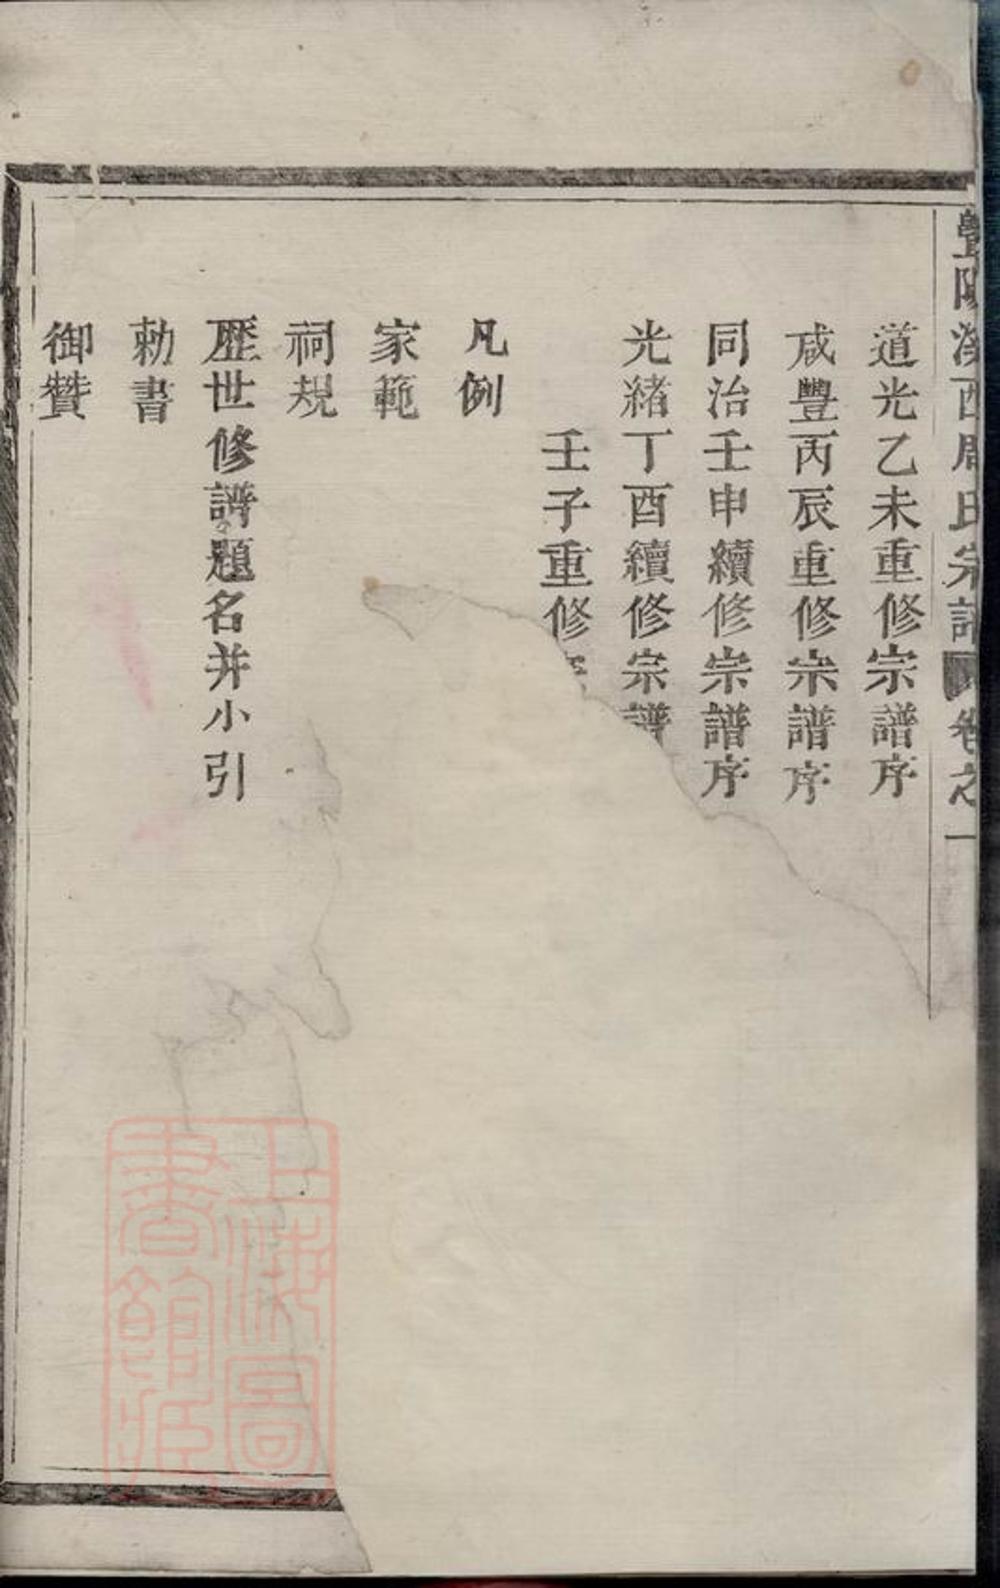 暨陽漢西周氏宗譜 卷之一
道光乙未重修宗譜序
咸豐丙辰重修宗譜序
同治壬申續修宗譜序
光緒丁酉續修宗譜
壬子重修宗
凡例
家範
祠規
歷世修譜題名并小引
勅書
御贊
上海圖書館藏